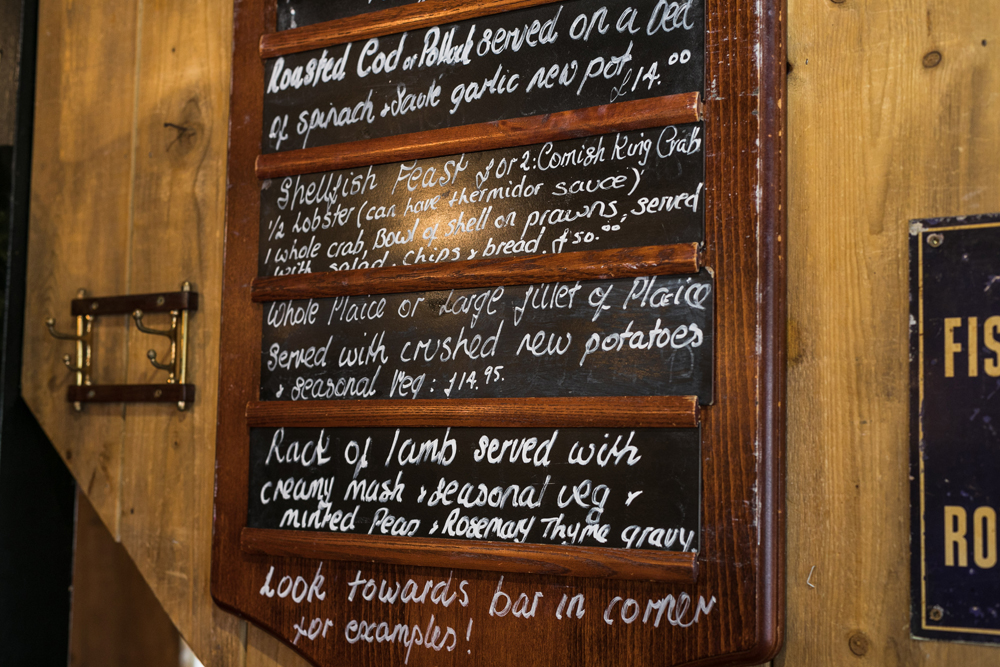 Roasted Cod or Pollock served on a bed
of spinach & Saute garlic new pot £14.00
Shellfish Feast for 2: Cornish King Crab
1/2 Lobster (can have thermidor sauce)
1 whole crab, Bowl of shell on prawns, served
with salad, Chips & bread. £50.00
Whole Plaice or Large fillet of Plaice
Served with crushed new potatoes
& seasonal Veg: £14.95.
Rack of lamb served with
creamy mash & seasonal veg &
minted Peas & Rosemary Thyme gravy
Look towards bar in corner
for examples!
FIS
RO